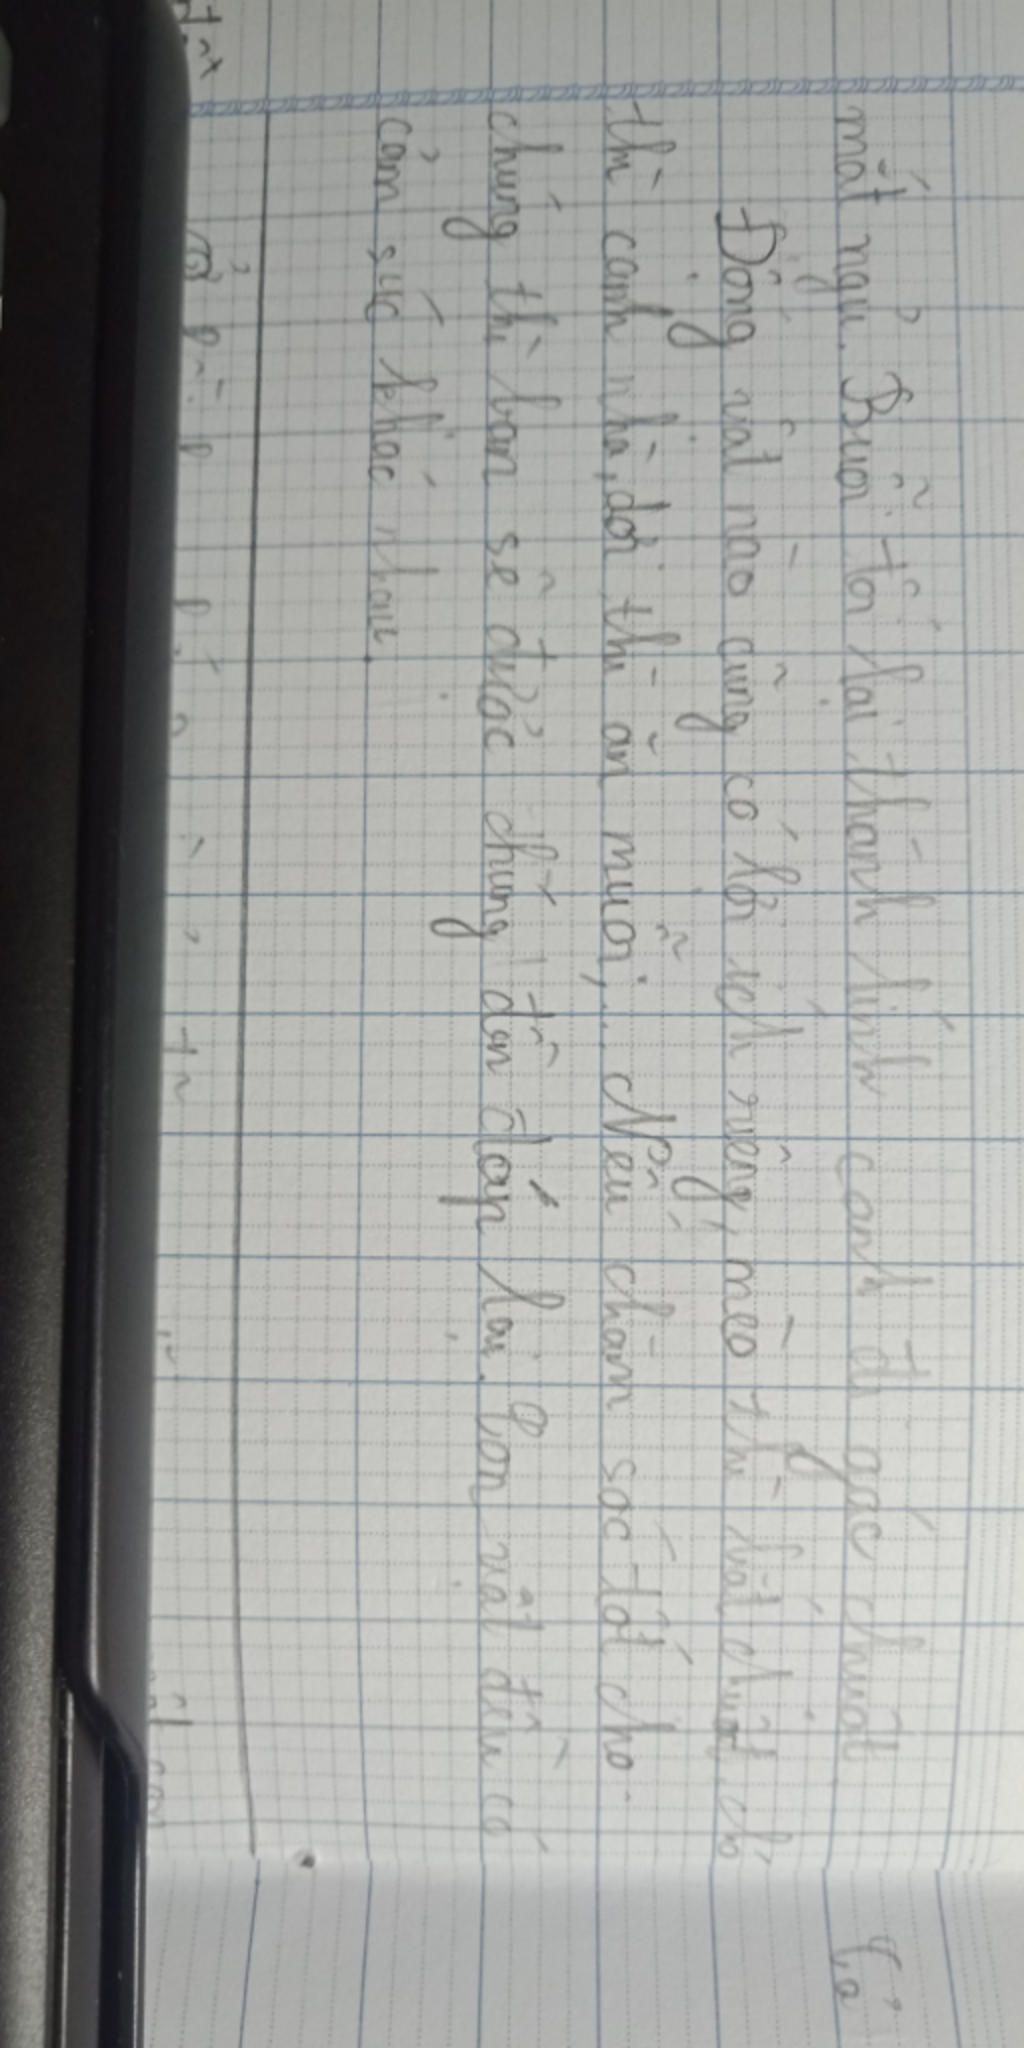 mắt ngủ. Buổi tối lại thành lính canh đi gác chuột
Động vật nào cũng có lợi ích riêng, mèo thì bắt chuột, chó
thì canh nhà, dơi thì ăn muỗi,... Nếu chăm sóc tốt cho
chúng thì bạn sẽ được chúng đền đáp lại. Con vật đều có
cảm súc khác nhau.